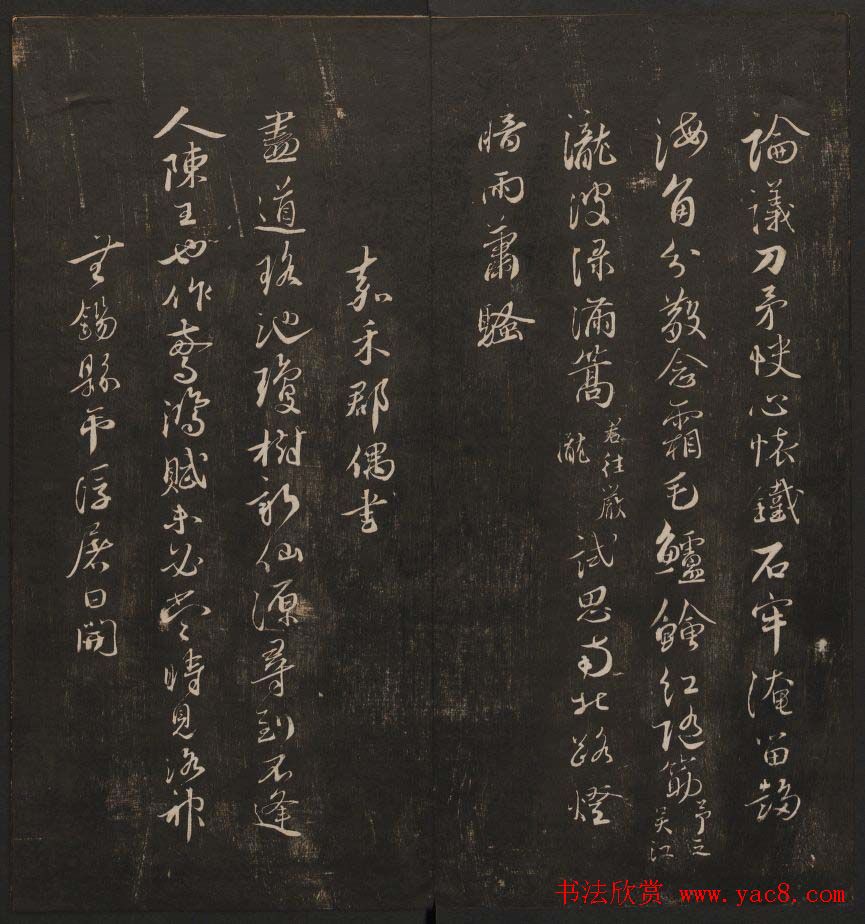 論議刀矛快心懷鐵石牢淹留趨
海角分散念霜毛鱸鱠紅随筯予之吴江
瀧波渌滿篙君往嚴瀧試思南北路燈
暗雨蕭騷
嘉禾郡偶書
盡道瑤池瓊樹新仙源尋到不逢
人陳王也作驚鴻賦未必當時見洛神
無錫縣吊浮屠日開
书法欣赏 www.yac8.com